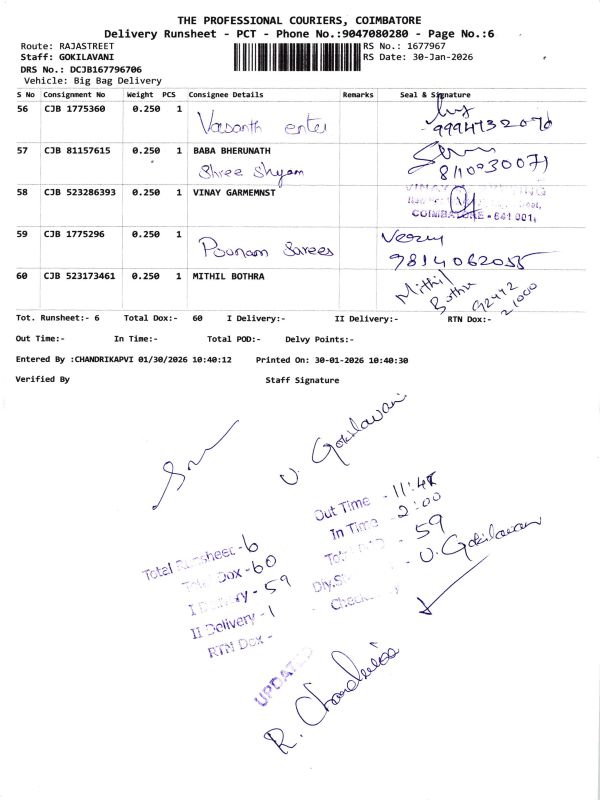 THE PROFESSIONAL COURIERS, COIMBATORE
Delivery Runsheet - PCT - Phone No.:9047080280 - Page No.:6
Route: RAJASTREET
RS No.: 1677967
Staff: GOKILAVANI
RS Date: 30-Jan-2026
DRS No.: DCJB167796706
Vehicle: Big Bag Delivery
S No Consignment No Weight PCS Consignee Details Remarks Seal & Signature
56 CJB 1775360 0.250 1 Vasanth enter
9994732070
57 CJB 81157615 0.250 1 BABA BHERUNATH
Shree Shyam
8110030071
58 CJB 523286393 0.250 1 VINAY GARMEMNST
COIMBATORE - 641 001.
59 CJB 1775296 0.250 1 Poonam Sarees
9814062055
60 CJB 523173461 0.250 1 MITHIL BOTHRA
Mithil
Bothra
92442
21000
Tot. Runsheet:- 6 Total Dox:- 60 I Delivery:- II Delivery:- RTN Dox:-
Out Time:- In Time:- Total POD:- Delvy Points:-
Entered By :CHANDRIKAPVI 01/30/2026 10:40:12 Printed On: 30-01-2026 10:40:30
Verified By Staff Signature
U. Gokilavani
Out Time - 11:45
In Time - 2:00
59
U. Gokilavani
Total Runsheet - 6
Total Dox - 60
I Delivery - 59
II Delivery - 1
RTN Dox -
UPDATED
R. Chandrika